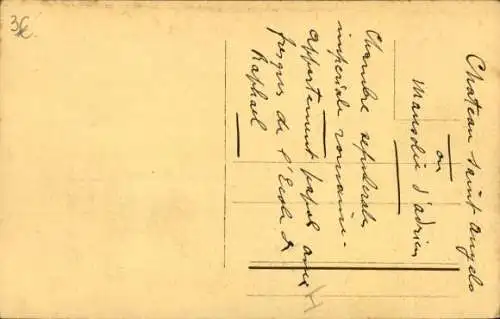 Chateau Saint Angelo
ou
Mausolée d'adrien
Chambre sepulcrale
imperiale romaine.
appartement papal avec
fresques de l'Ecole de
Raphael